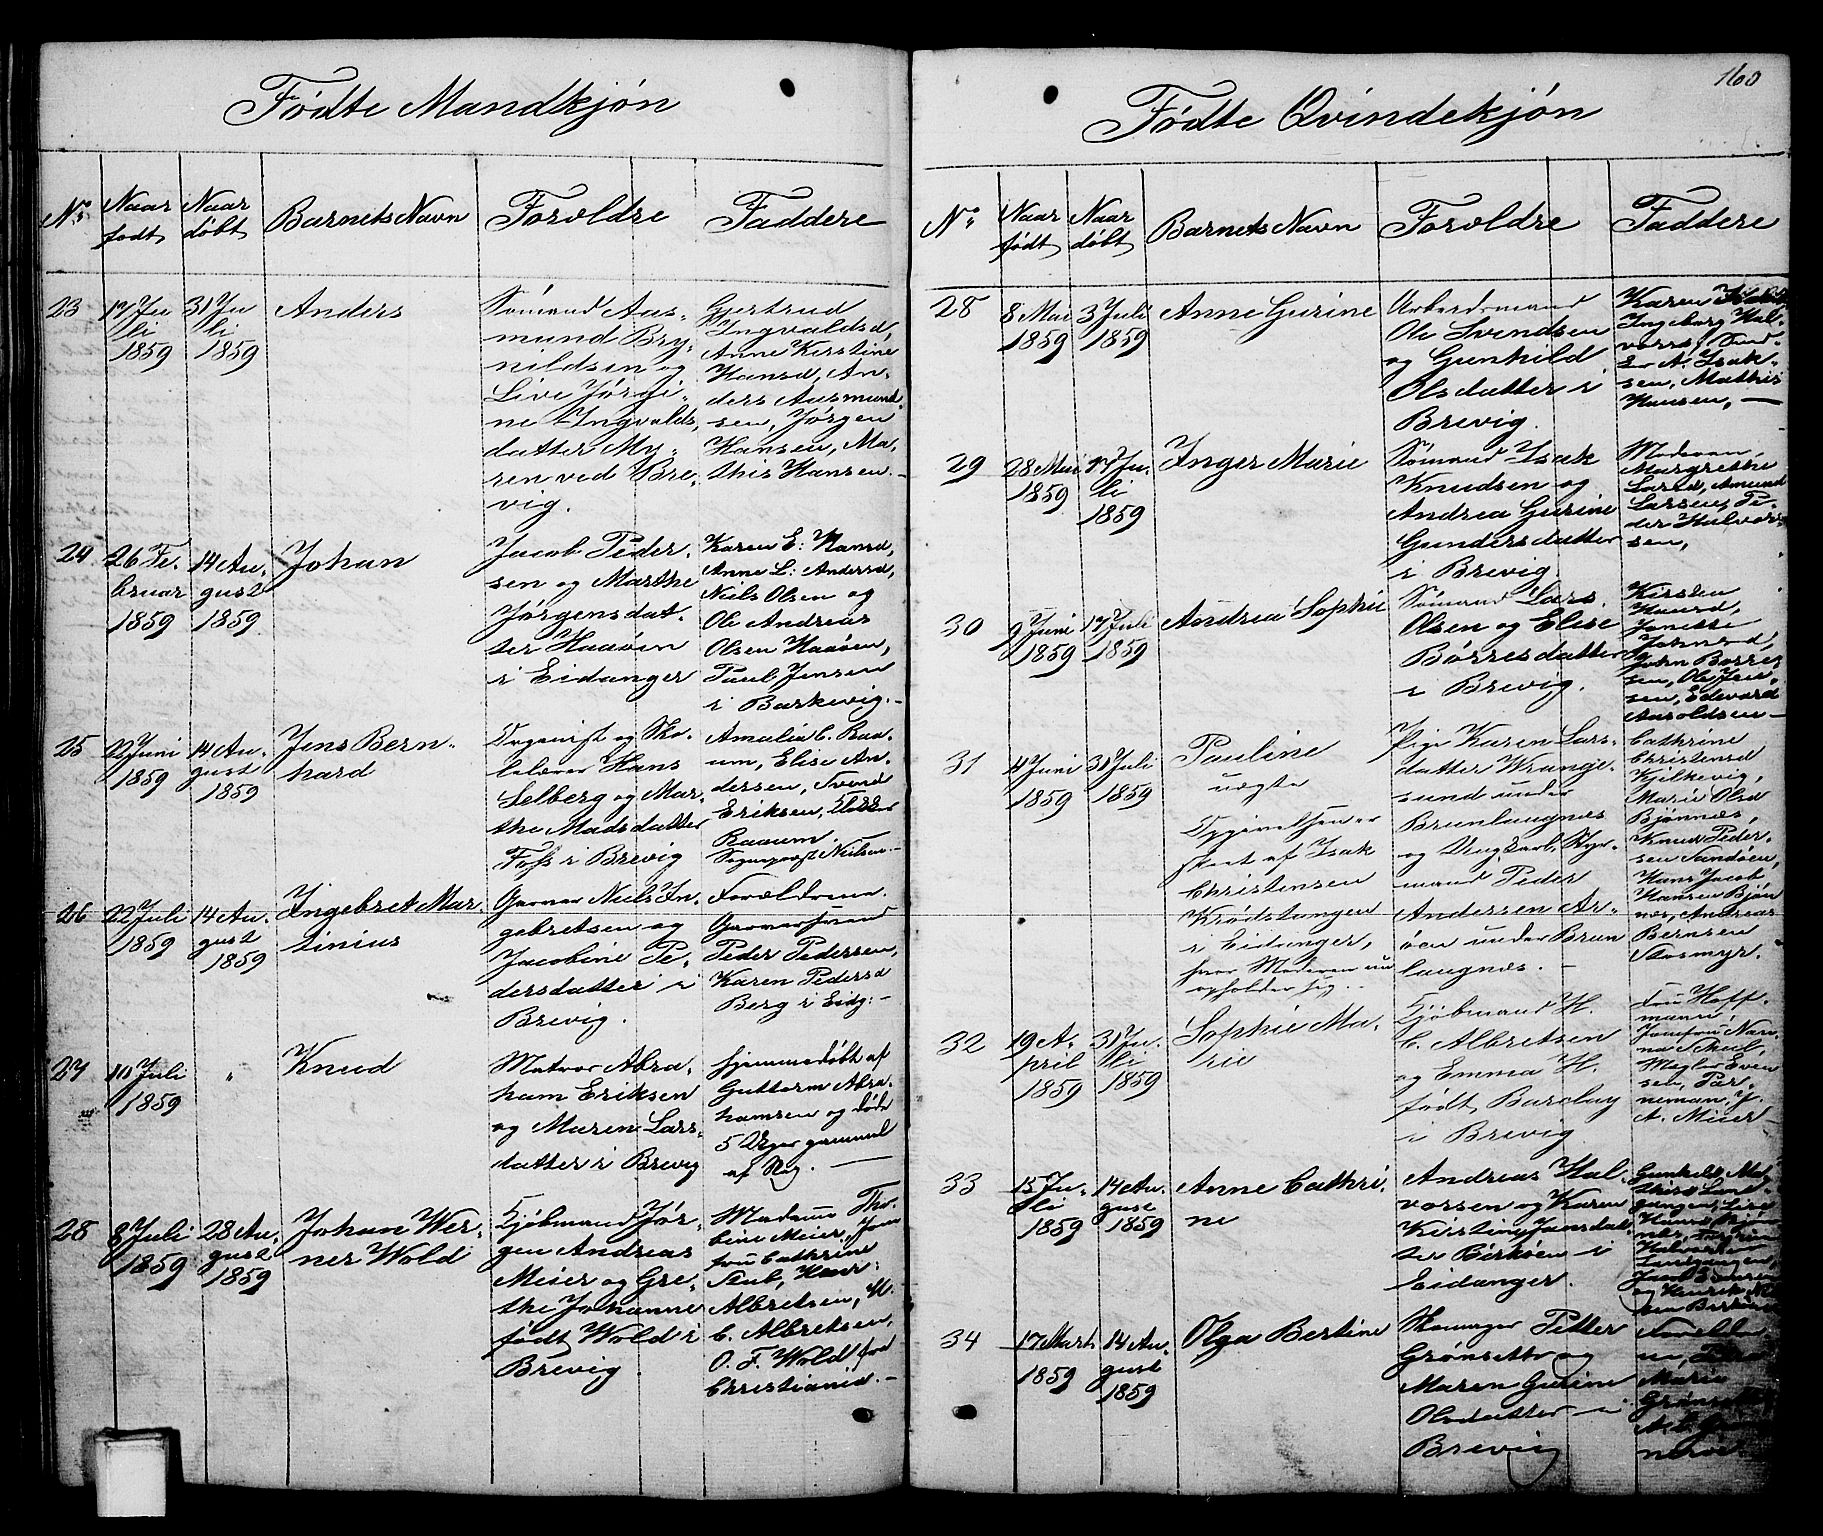 Fødte Mandkjøn
No. Naar født Naar døbt Barnets Navn Forældre Faddere
23 17 Ju Anders
li
1859
31 Ju
li
1859
Sømand Aas-
mund Bry-
nildsen og
Live Jørgi-
ne Ingvalds,
datter My-
ren ved Bre-
vig.
Gjertrud
Ingvaldsd,
Anne Kirstine
Hansd, An-
ders Aasmund-
sen, Jørgen
Hansen, Ma-
this Hansen.-
24 26 Fe-
bruar
1859
14 Au-
gust
1859
Johan
Jacob Peder-
sen og Marthe
Jørgensdat-
ter Haaøen
i Eidanger
Karen E: Hansd,
Anne L: Andersd,
Niels Olsen og
Ole Andreas
Olsen Haaøen,
Paul Jensen
i Barkevig.-
25 22 Juni
1859
14 Au-
gust
1859
Jens Bern-
hard
Organist og Sko-
lelærer Hans
Selberg og Mar-
the Madsdatter
Foss i Brevig
Amalia C. Raa-
um, Elise An-
dersen, Svend
Eriksen,
Raaum
Sogneprest Nielsen-
26 22 Juli
1859
14 Au-
gust
1859
Ingebret Mar-
tinius
Garver Niels In-
gebretsen og
Jacobine Pe-
dersdatter i
Brevig.
Forældrene.
Garversvend
Peder Pedersen,
Karen Pedersd
Berg i Eidg:-
27 10 Juli
1859
"
Knud
Matros Abra-
ham Eriksen
og Maren Lars-
datter i Brevig
hjemmedøbt af
Guttorm Abra-
hamsen og døde
5 Uger gammel
af Slag.
28 8 Juli
1859
28 Au-
gust
1859
Johan Wer-
ner Wold
Kjøbmand Jør-
gen Andreas
Meier og Gre-
the Johanne
født Wold i
Brevig
Madame Tho-
bine Meier, Jom
fru Cathrine
Stub, Herr
Albretsen, H.
C. Albretsen,
O. F. Wold fra
Christiania.-
160
Fødte Qvindekjøn
No. Naar født Naar døbt Barnets Navn Forældre Faddere
28 8 Mai
1859
3 Juli
1859
Anne Gurine
Arbeidsmand
Ole Svendsen
og Gunhild
Olsdatter i
Brevig.
Karen
Ingeborg Hal-
vorsd,
A. Isak-
sen, Mathis
Hansen,
29 28 Mai
1859
17 Ju-
li
1859
Inger Marie
Sømand Isak
Knudsen og
Andrea Gurine
Gundersdatter
i Brevig.
Moderen,
Margrethe
Larsd, Amund
Larsen, Pe-
der Halvor-
sen,
30 9 Juni
1859
17 Juli
1859
Andrea Sophie
Sømand Lars
Olsen og Elise
Børresdatter
i Brevig.
Kirsten
Hansd,
Jonette
John Børre-
sen, Ole Jen-
sen, Edevard
Aaroldsen-
31 4 Juni
1859
31 Juli
1859
Pauline
uægte
Opgivelsen er
skeet af Isak
Christensen
Krødstangen
i Eidanger,
hvor Moderen nu
opholder sig.-
Pige Karen Lars-
datter Wrange-
sund under
Brunlaugnæs
og Ungkarl, Styr-
mand Peder
Andersen Ar-
øen under Brun
laugnæs.-
Cathrine
Christensd
Kjelkevig,
Marie Olsd
Bjønnes,
Knud Peder-
sen Sandøen,
Hans Jacob
Hansen Bjøn
nes, Andreas
Bernsen
Stosmyr.
32 19 A-
pril
1859
31 Ju-
li
1859
Sophie Ma-
rie
Kjøbmand H.
C. Albretsen
og Emma H.
født Barclay
i Brevig.
Fru Hoff-
mann,
Jomfru Nan-
na Stub,
Mægler Even-
sen, Par-
neman, J.
A. Meier
33 15 Ju-
li
1859
14 Au-
gust
1859
Anne Cathri-
ne
Andreas Hal-
vorsen og Karen
Kirstine Jensdat-
ter Birkøen i
Eidanger.
Gunhild
34 17 Marts
1859
14 Au-
gust
1859
Olga Bertine
Skomager Petter
Grønseth og
Maren Gurine
Olsdatter i
Brevig
Marie